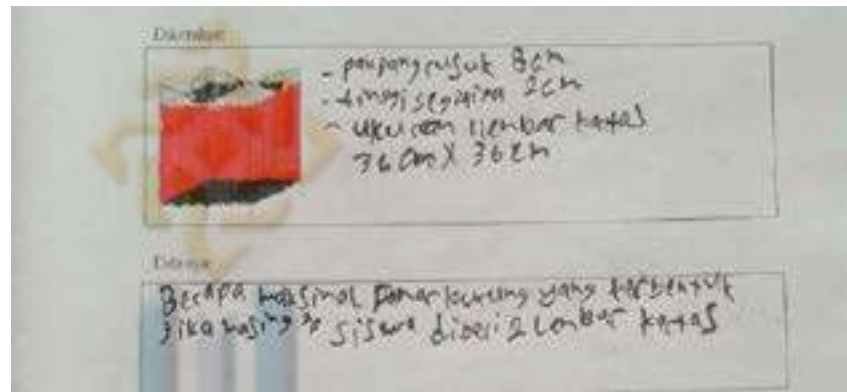 Diketahui
- panjang rusuk 8cm
- tinggi segitiga 2cm
- ukuran lembar kertas
36 cm X 36 cm
Ditanya
Berapa maksimal yang terbentuk
jika masing² siswa diberi 2 lembar kertas